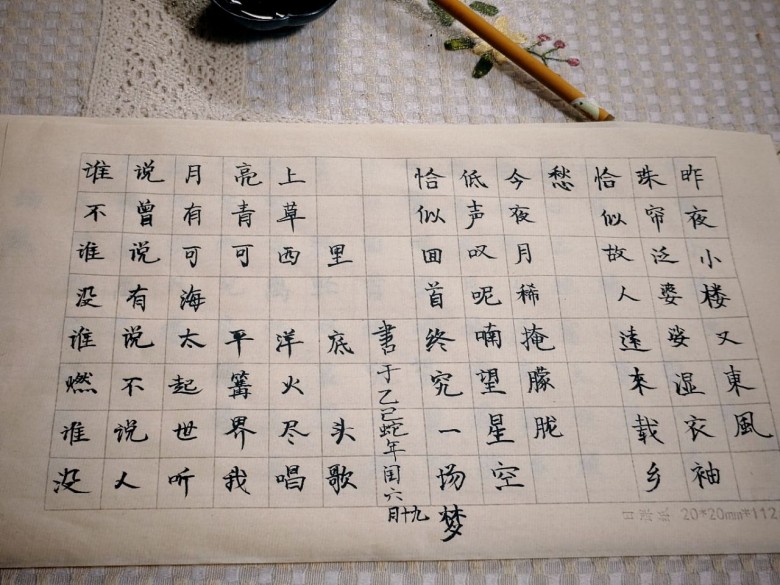 昨夜小楼又東風
珠帘泛婆娑湿衣袖
恰似故人遠来载乡
愁
今夜月稀掩朦胧
低声叹呢喃望星空
恰似回首终究一场梦
書于乙巳蛇年闰六月十九
谁说月亮上
不曾有青草
谁说可可西里
没有海
谁说太平洋底
燃不起篝火
谁说世界尽头
没人听我唱歌
20*20mm*112